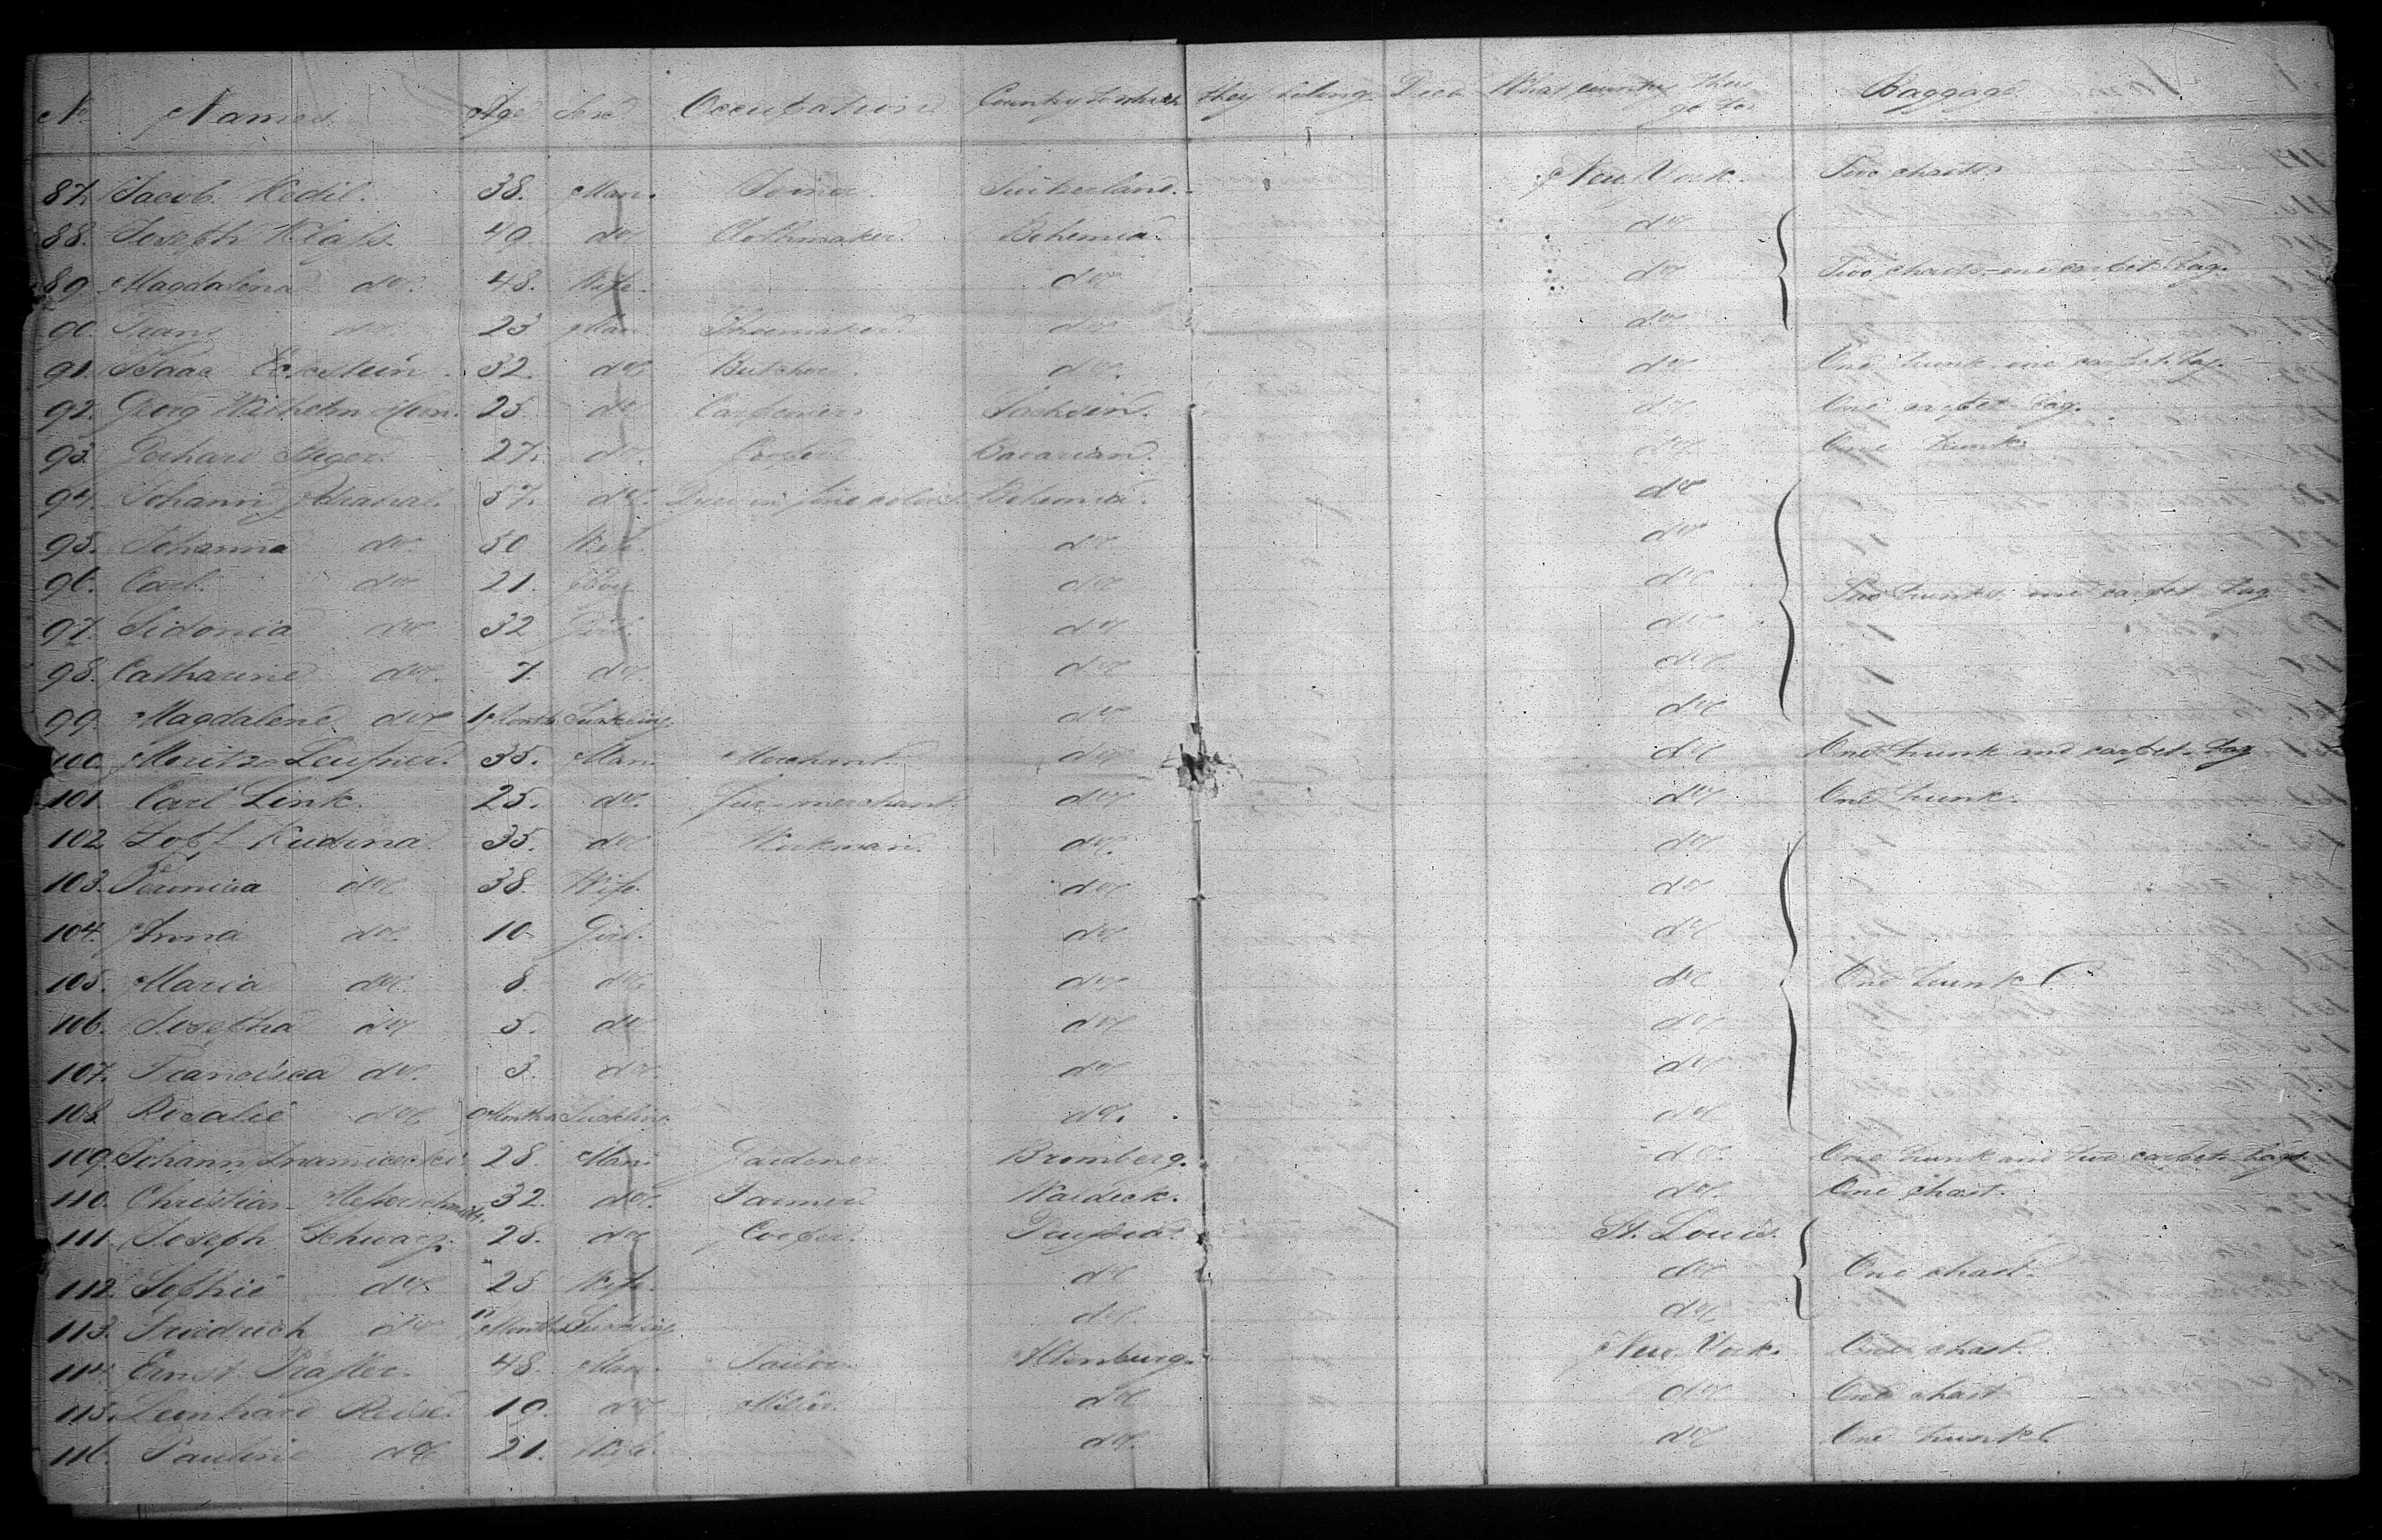 No. Names. Age Sex Occupation Country to which they belong. Deck What country they go to. Baggage
87. Jacob Hedil. 38. Man. Joiner. Switzerland. New York. Two chests
88. Joseph Klass. 49. do Clothmaker. Bohemia. do
89. Magdalena do. 48. Wife. do do Two chests one carpet bag.
90. Franz do. 23 Man. Shoemaker do do
91. Isaac Eckstein. 32. do Butcher. do. do One trunk one carpet bag.
92. Georg Wilhelm 25. do Sachsen. do One carpet bag.
93. Gerhard 27. do. Bavarian. do One trunk.
94. Johann 37. do. Bohemia. do
95. Johanna do. 30 Wife. do do
96. Carl. do 21. Boy do do Two trunks one carpet bag
97. Sidonia do. 32 Girl. do do
98. Catharine do. 7. do. do do
99. Magdalene do 1 Month Suckling. do do
100. Moritz 35. Man. Merchant. do do One trunk and carpet bag
101. Carl Link. 25. do. do do One trunk.
102 Kudrna. 35. do Workman. do. do
103. Veronica do 38. Wife. do do
104. Anna do. 10 Girl. do do
105. Maria do. 8. do. do do One trunk.
106. Josepha do 5. do do do
107. Francisca do. 3. do. do do
108. Rosalie do Months Suckling. do. do
109. Johann 28. Man. Gardener. Bromberg. do. One trunk and two carpet bags.
110. Christian Messerschmidt. 32. do. Farmer. Waldeck. do. One chest.
111. Joseph Schwarz. 28. do Cooper. Prussia. St. Louis.
112. Sophie do. 25 Wife. do do One chest.
113. Friedrich do 11 Months Suckling. do. do
114. Ernst 48. Man. Tailor. Altenburg. New York. One chest.
115. Leonhard 19. do Miller. do do One chest
116. Pauline do 21. Wife. do. do One trunk.